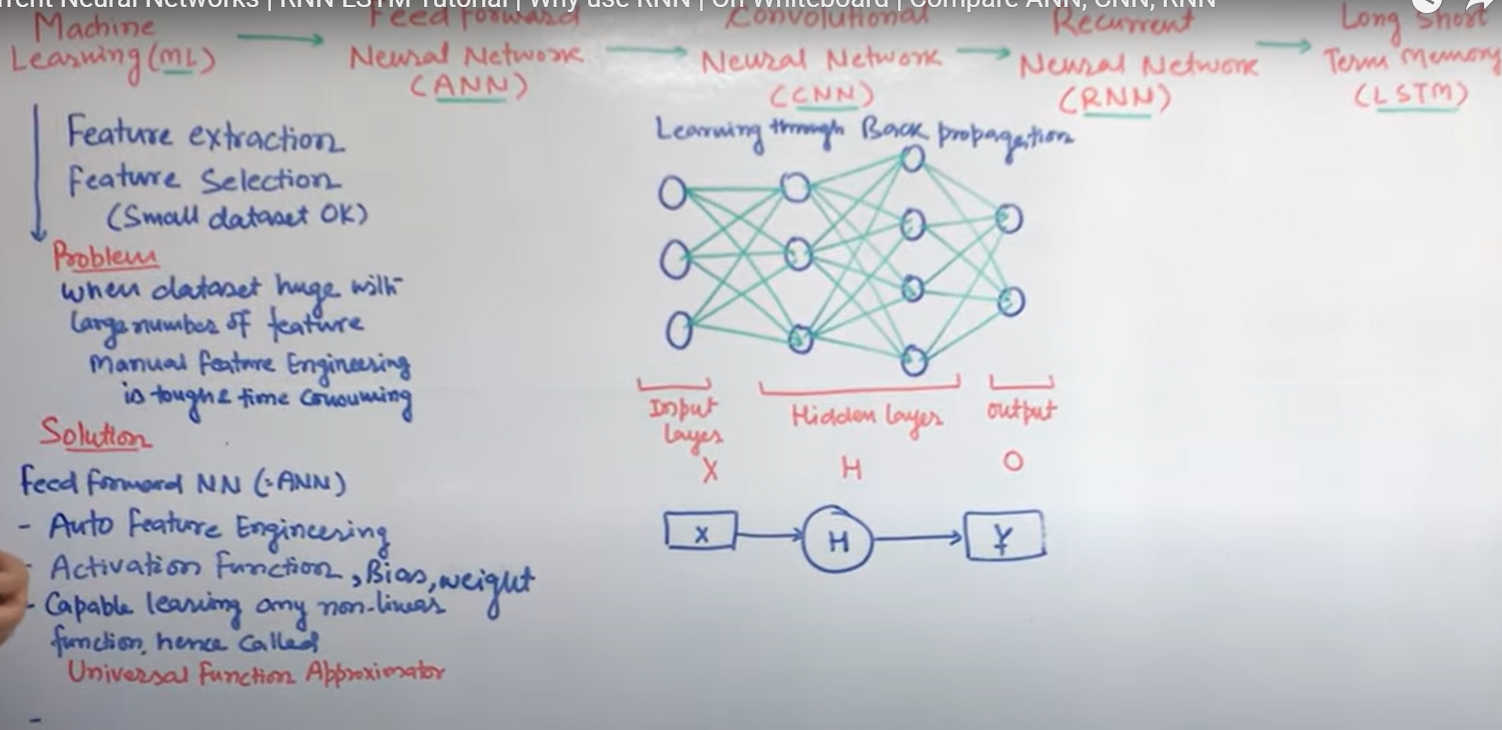 rrent Neural Networks | RNN LSTM Tutorial | Why use RNN | On Whiteboard | Compare ANN, CNN, RNN
Machine
Learning (ML)
Feed forward
Neural Network
(ANN)
Convolutional
Neural Network
(CNN)
Recurrent
Neural Network
(RNN)
Long Short
Term Memory
(LSTM)
Feature extraction
Feature Selection
(Small dataset OK)
Problem
when dataset huge with
large number of feature
Manual feature Engineering
is tough & time consuming
Solution
Feed forward NN (=ANN)
- Auto Feature Engineering
- Activation Function, Bias, weight
- Capable learning any non-linear
function, hence called
Universal Function Approximator
-
Learning through Back propagation
Input
layer
X
Hidden layer
H
output
O
X
H
Y